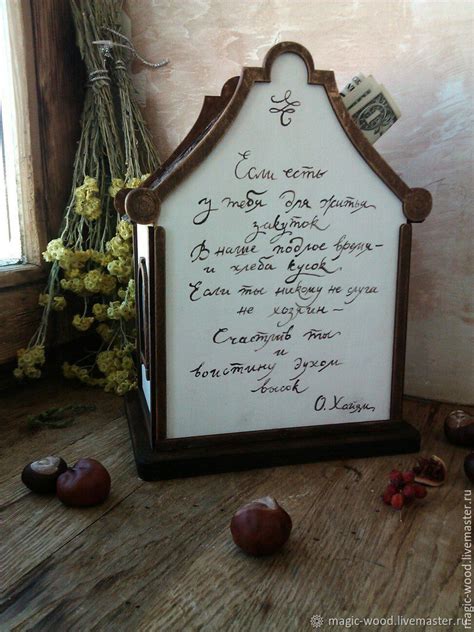 Если есть
у тебя для житья
закуток
В наше подлое время –
и хлеба кусок
Если ты никому не слуга
не хозяин –
Счастлив ты
и
воистину духом
высок
О. Хайям
magic-wood.livemaster.ru
magic-wood.livemaster.ru